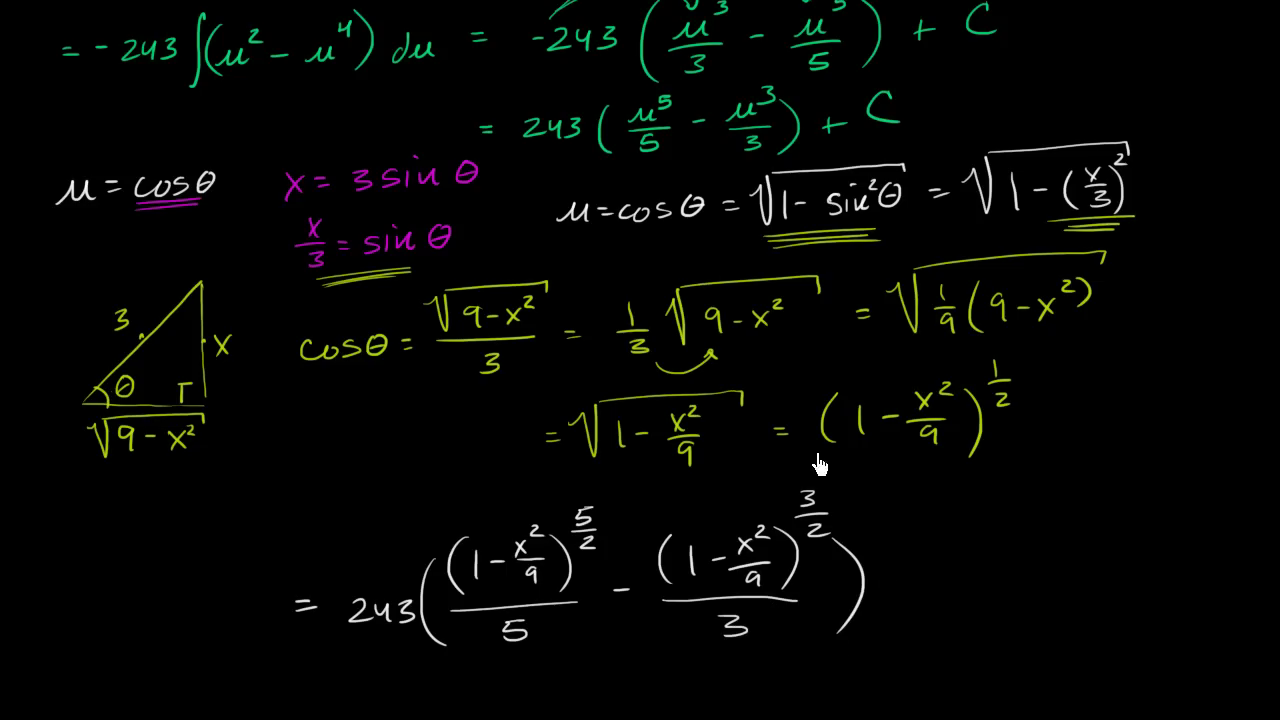 = -243 ∫(u² - u⁴) du = -243 (u³/3 - u⁵/5) + C
= 243 (u⁵/5 - u³/3) + C
u = cosθ
x = 3 sin θ
x/3 = sin θ
u = cos θ = √(1 - sin²θ) = √(1 - (x/3)²)
3
x
θ
√(9 - x²)
cosθ = √(9 - x²)/3 = 1/3 √(9 - x²) = √(1/9 (9 - x²))
= √(1 - x²/9) = (1 - x²/9)^(1/2)
= 243 ((1 - x²/9)^(5/2)/5 - (1 - x²/9)^(3/2)/3)